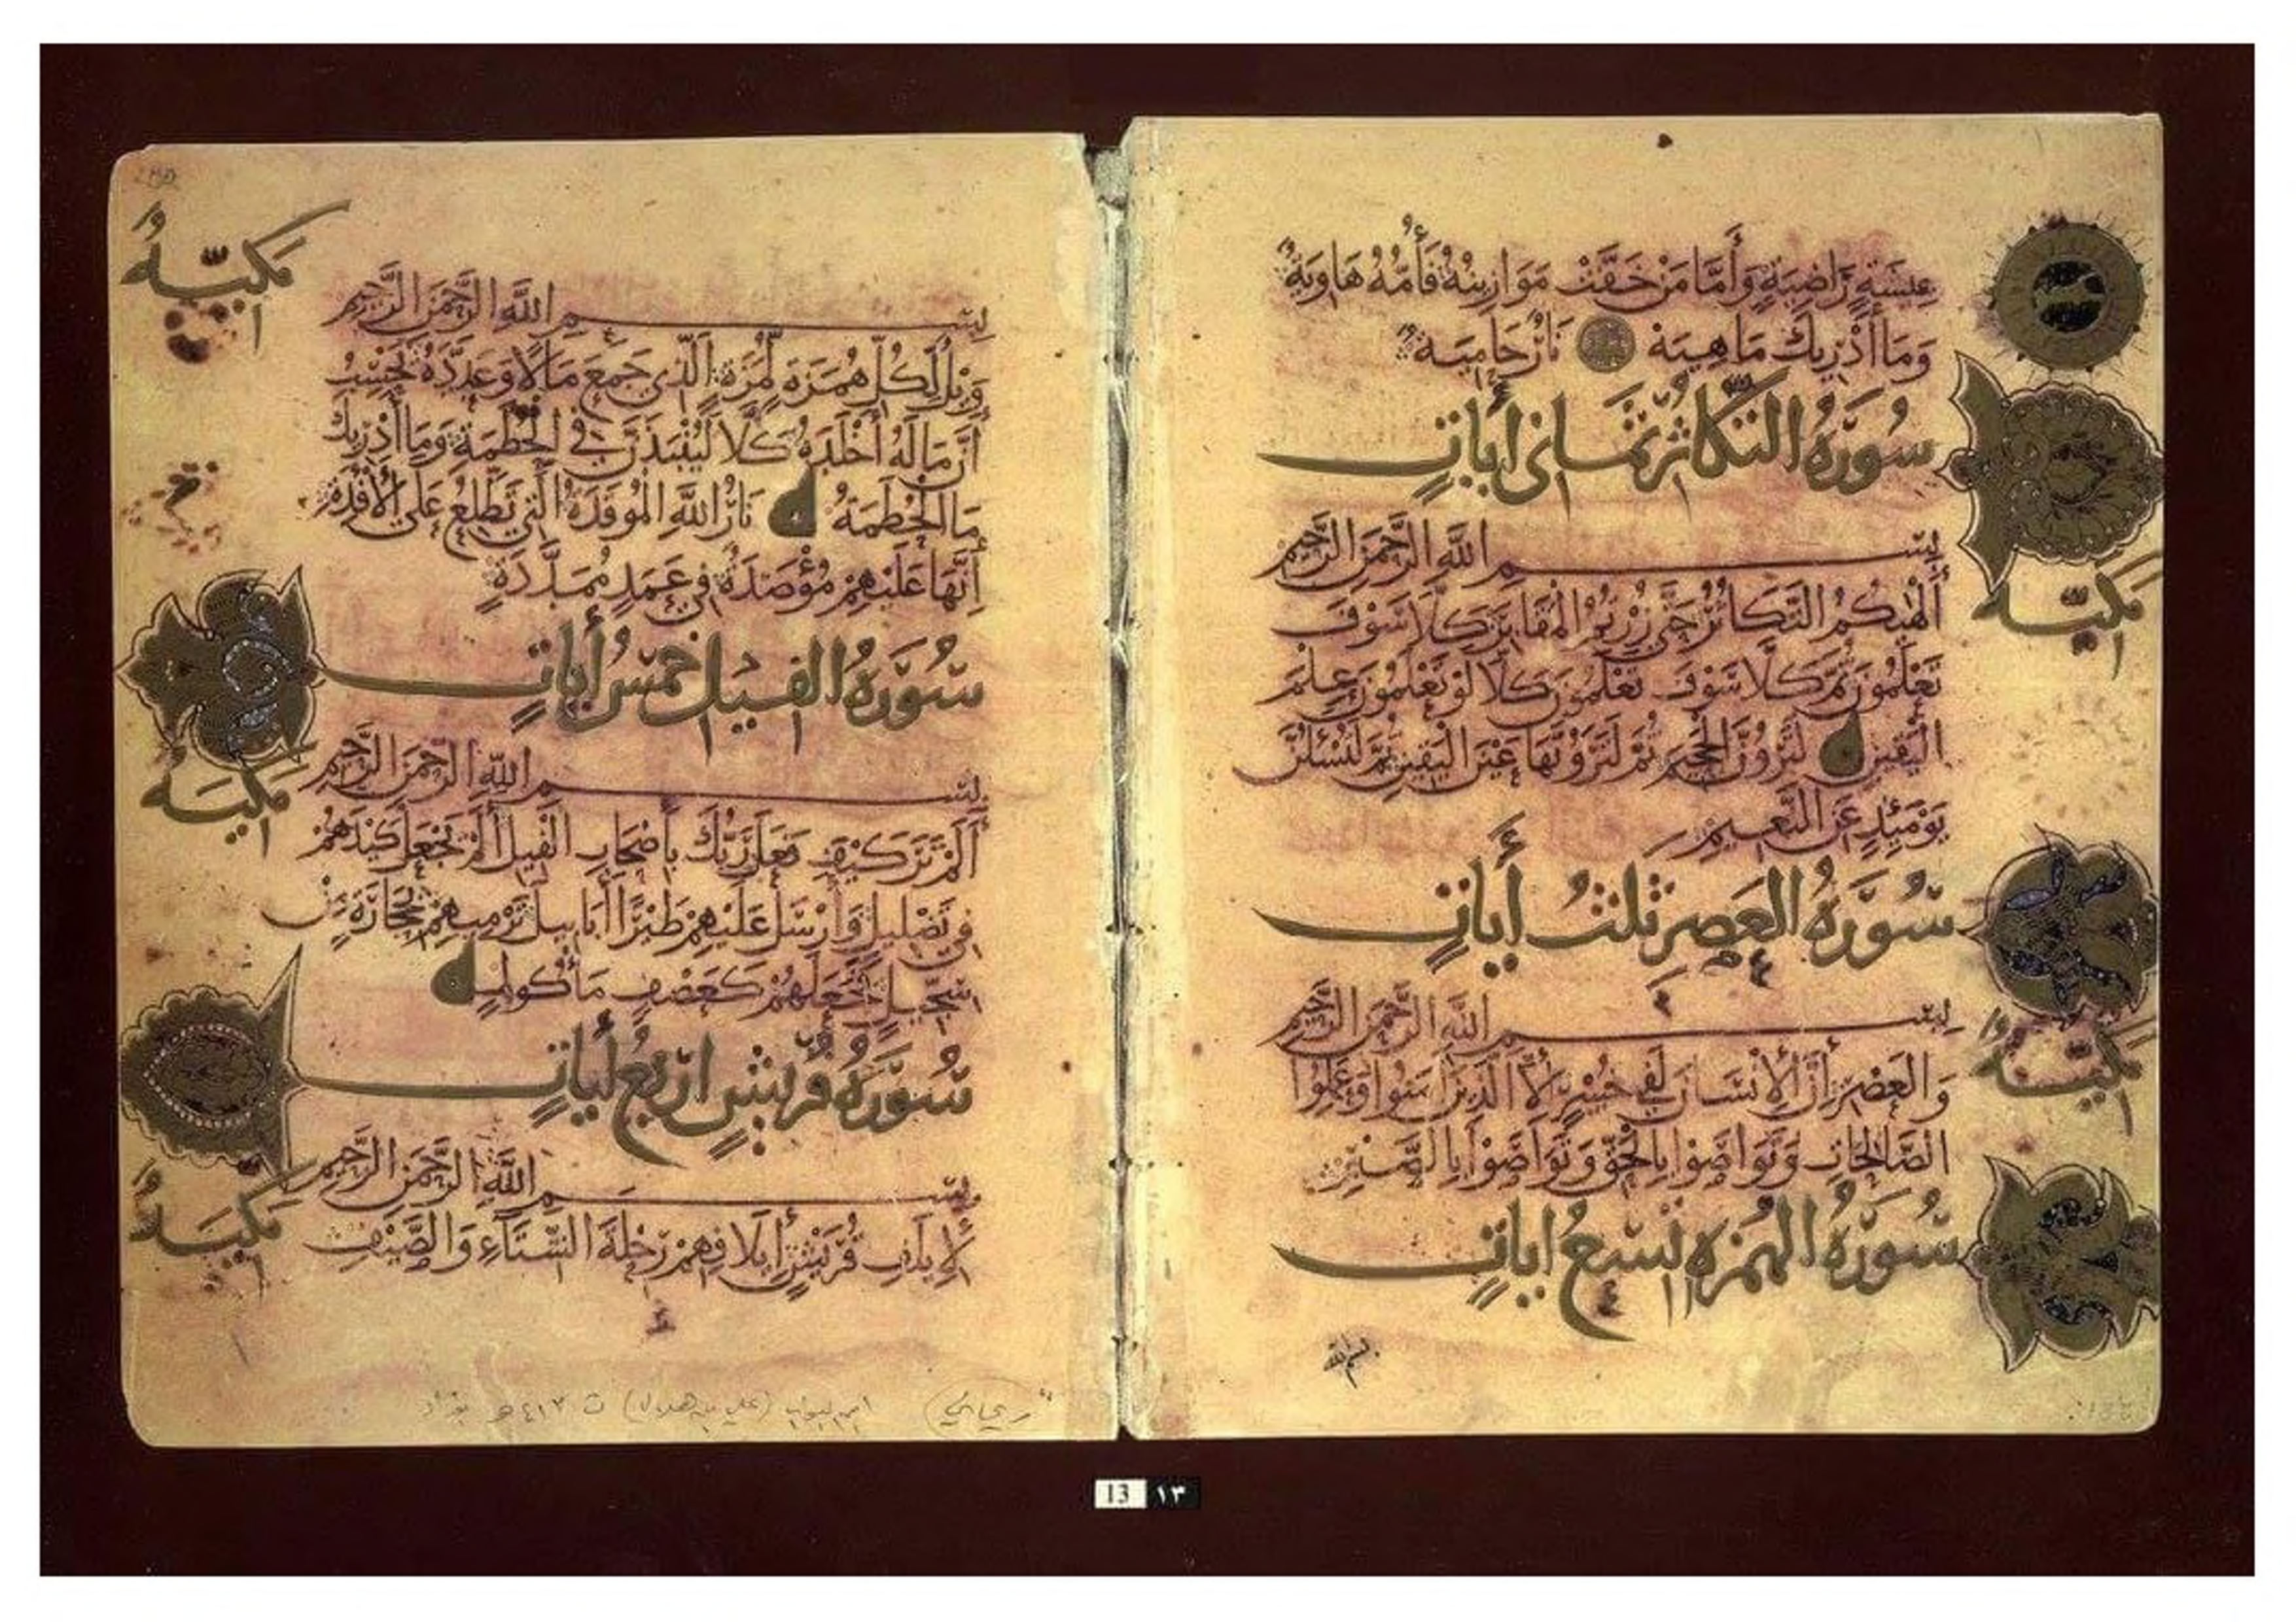 عيشة راضية وأما من خفت موازينه فأمه هاوية
وما أدريك ما هيه نار حامية
سورة التكاثر ثماني أيات
مكية
بسم الله الرحمن الرحيم
ألهيكم التكاثر حتى زرتم المقابر كلا سوف
تعلمون ثم كلا سوف تعلمون كلا لو تعلمون علم
اليقين لترون الجحيم ثم لترونها عين اليقين ثم لتسئلن
يومئذ عن النعيم
سورة العصر ثلث أيات
مكية
بسم الله الرحمن الرحيم
والعصر إن الإنسان لفي خسر إلا الذين آمنوا وعملوا
الصالحات وتواصوا بالحق وتواصوا بالصبر
سورة الهمزة تسع ايات
بسم الله
مكية
بسم الله الرحمن الرحيم
ويل لكل همزة لمزة الذي جمع مالا وعدده يحسب
أن ماله أخلده كلا لينبذن في الحطمة وما أدريك
ما الحطمة نار الله الموقدة التي تطلع على الأفئدة
إنها عليهم مؤصدة في عمد ممددة
سورة الفيل خمس أيات
مكية
بسم الله الرحمن الرحيم
ألم تر كيف فعل ربك بأصحاب الفيل ألم يجعل كيدهم
في تضليل وأرسل عليهم طيرا أبابيل ترميهم بحجارة من
سجيل فجعلهم كعصف مأكول
سورة قريش اربع أيات
مكية
بسم الله الرحمن الرحيم
لإيلاف قريش إيلافهم رحلة الشتاء والصيف
ريحاني ابن البواب (علي بن هلال) ت ٤١٣ هـ بغداد
13 ١٣